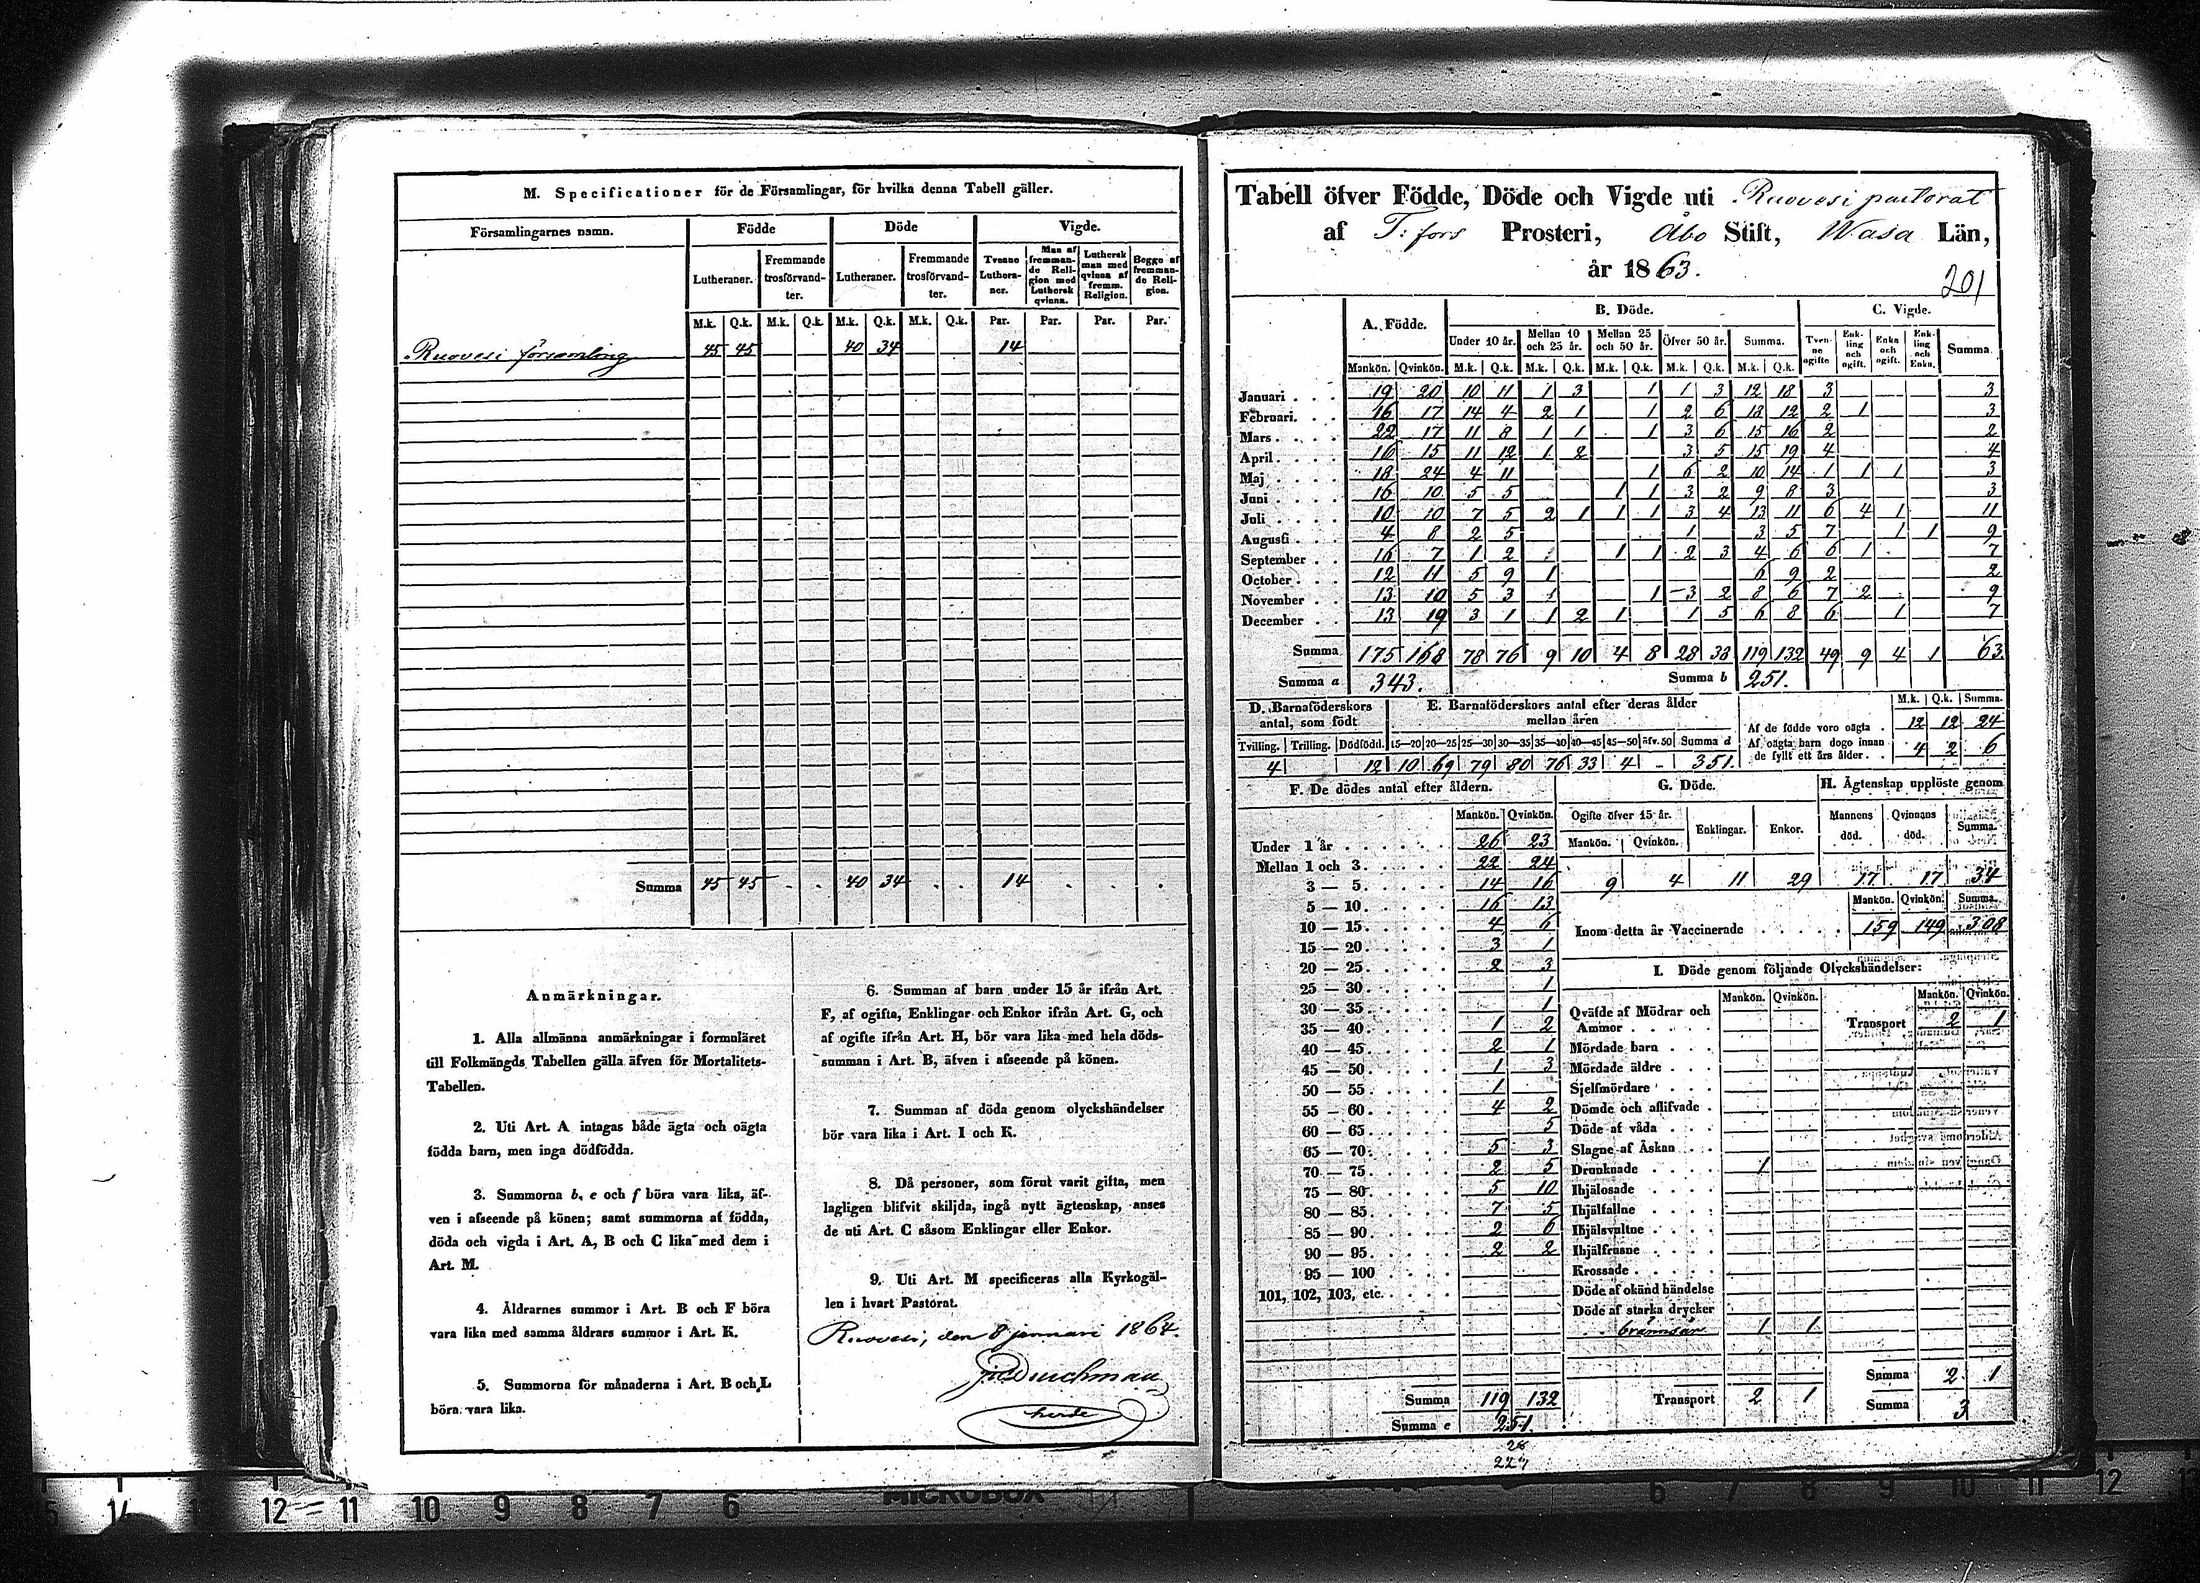 M. Specificationer för de Församlingar, för hvilka denna Tabell gäller.
Församlingarnes namn. Födde Döde Vigde.
Lutheraner. Fremmande trosförvandter. Lutheraner. Fremmande trosförvandter. Tvenne Lutheraner. Man af fremmande Religion med Luthersk qvinna. Luthersk man med qvinna af fremm. Religion. Begge af fremmande Religion.
M.k. Q.k. M.k. Q.k. M.k. Q.k. M.k. Q.k. Par. Par. Par. Par.
Ruovesi församling 45 45 40 34 14
Summa 45 45 . . 40 34 . . 14 . . .
Anmärkningar.
1. Alla allmänna anmärkningar i formuläret
till Folkmängds Tabellen gälla äfven för Mortalitets-
Tabellen.
2. Uti Art. A intagas både ägta och oägta
födda barn, men inga dödfödda.
3. Summorna b, e och f böra vara lika, äf-
ven i afseende på könen; samt summorna af födda,
döda och vigda i Art. A, B och C lika med dem i
Art. M.
4. Åldrarnes summor i Art. B och F böra
vara lika med samma åldrars summor i Art. K.
5. Summorna för månaderna i Art. B och L
böra vara lika.
6. Summan af barn under 15 år ifrån Art.
F, af ogifta, Enklingar och Enkor ifrån Art. G, och
af ogifte ifrån Art. H, bör vara lika med hela döds-
summan i Art. B, äfven i afseende på könen.
7. Summan af döda genom olyckshändelser
bör vara lika i Art. I och K.
8. Då personer, som förut varit gifta, men
lagligen blifvit skiljda, ingå nytt ägtenskap, anses
de uti Art. C såsom Enklingar eller Enkor.
9. Uti Art. M specificeras alla Kyrkogäl-
len i hvart Pastorat.
Ruovesi, den 8 januari 1864.
Tabell öfver Födde, Döde och Vigde uti Ruovesi pastorat
af T:fors Prosteri, Åbo Stift, Wasa Län,
år 1863.
201
A. Födde. B. Döde. C. Vigde.
Under 10 år. Mellan 10 och 25 år. Mellan 25 och 50 år. Öfver 50 år. Summa. Tvenne ogifte Enkling och ogift. Enka och ogift. Enkling och Enka. Summa.
Mankön. Qvinkön. M.k. Q.k. M.k. Q.k. M.k. Q.k. M.k. Q.k. M.k. Q.k.
Januari . . . 19 20 10 11 1 3 1 1 3 12 18 3 3
Februari. . . 16 17 14 4 2 1 1 2 6 18 12 2 1 3
Mars . . . . 22 17 11 8 1 1 1 3 6 15 16 2 2
April . . . . 16 15 11 12 1 2 3 5 15 19 4 4
Maj . . . . 18 24 4 11 1 6 2 10 14 1 1 1 3
Juni . . . . 16 10 5 5 1 1 3 2 9 8 3 3
Juli . . . . 10 10 7 5 2 1 1 1 3 4 13 11 6 4 1 11
Augusti . . 4 8 2 5 1 3 5 7 1 1 9
September . . 16 7 1 2 1 1 2 3 4 6 6 1 7
October . . . 12 11 5 9 1 6 9 2 2
November . . 13 10 5 3 1 1 3 2 8 6 7 2 9
December . . 13 19 3 1 1 2 1 1 5 6 8 6 1 7
Summa 175 168 78 76 9 10 4 8 28 38 119 132 49 9 4 1 63
Summa a 343. Summa b 251.
D. Barnaföderskors antal, som födt
Tvilling. Trilling. Dödfödd.
4 12
E. Barnaföderskors antal efter deras ålder mellan åren
15—20 20—25 25—30 30—35 35—40 40—45 45—50 öfv. 50 Summa d
10 69 79 80 76 33 4 - 351.
M.k. Q.k. Summa.
Af de födde voro oägta . 12 12 24
Af oägta barn dogo innan de fyllt ett års ålder. . 4 2 6
F. De dödes antal efter åldern.
Mankön. Qvinkön.
Under 1 år 26 23
Mellan 1 och 3. 22 24
3 — 5. 14 16
5 — 10. 16 13
10 — 15. 4 6
15 — 20. 3 1
20 — 25. 2 3
25 — 30. 1
30 — 35. 1
35 — 40. 1 2
40 — 45. 2 1
45 — 50. 1 3
50 — 55. 1
55 — 60. 4 2
60 — 65. 5
65 — 70. 5 3
70 — 75. 2 5
75 — 80. 5 10
80 — 85. 7 5
85 — 90. 2 6
90 — 95. 2 2
95 — 100
101, 102, 103, etc.
Summa 119 132
Summa e 251.
G. Döde.
Ogifte öfver 15 år. Enklingar. Enkor.
Mankön. Qvinkön.
9 4 11 29
H. Ägtenskap upplöste genom
Mannens död. Qvinnans död. Summa.
17 17 34
Mankön. Qvinkön. Summa.
Inom detta år Vaccinerade 159 149 308
I. Döde genom följande Olyckshändelser:
Mankön. Qvinkön. Mankön. Qvinkön.
Qväfde af Mödrar och Ammor
Mördade barn
Mördade äldre
Sjelfmördare
Dömde och aflifvade
Döde af våda
Slagne af Åskan
Drunknade 1
Ihjälosade
Ihjälfallne
Ihjälsvultne
Ihjälfrusne
Krossade
Döde af okänd händelse
Döde af starka drycker
brännsår 1 1
Transport 2 1
Transport 2 1
Summa 2 1
Summa 3
MICROBOX
12 11 10 9 8 7 6
6 7 8 9 10 11 12